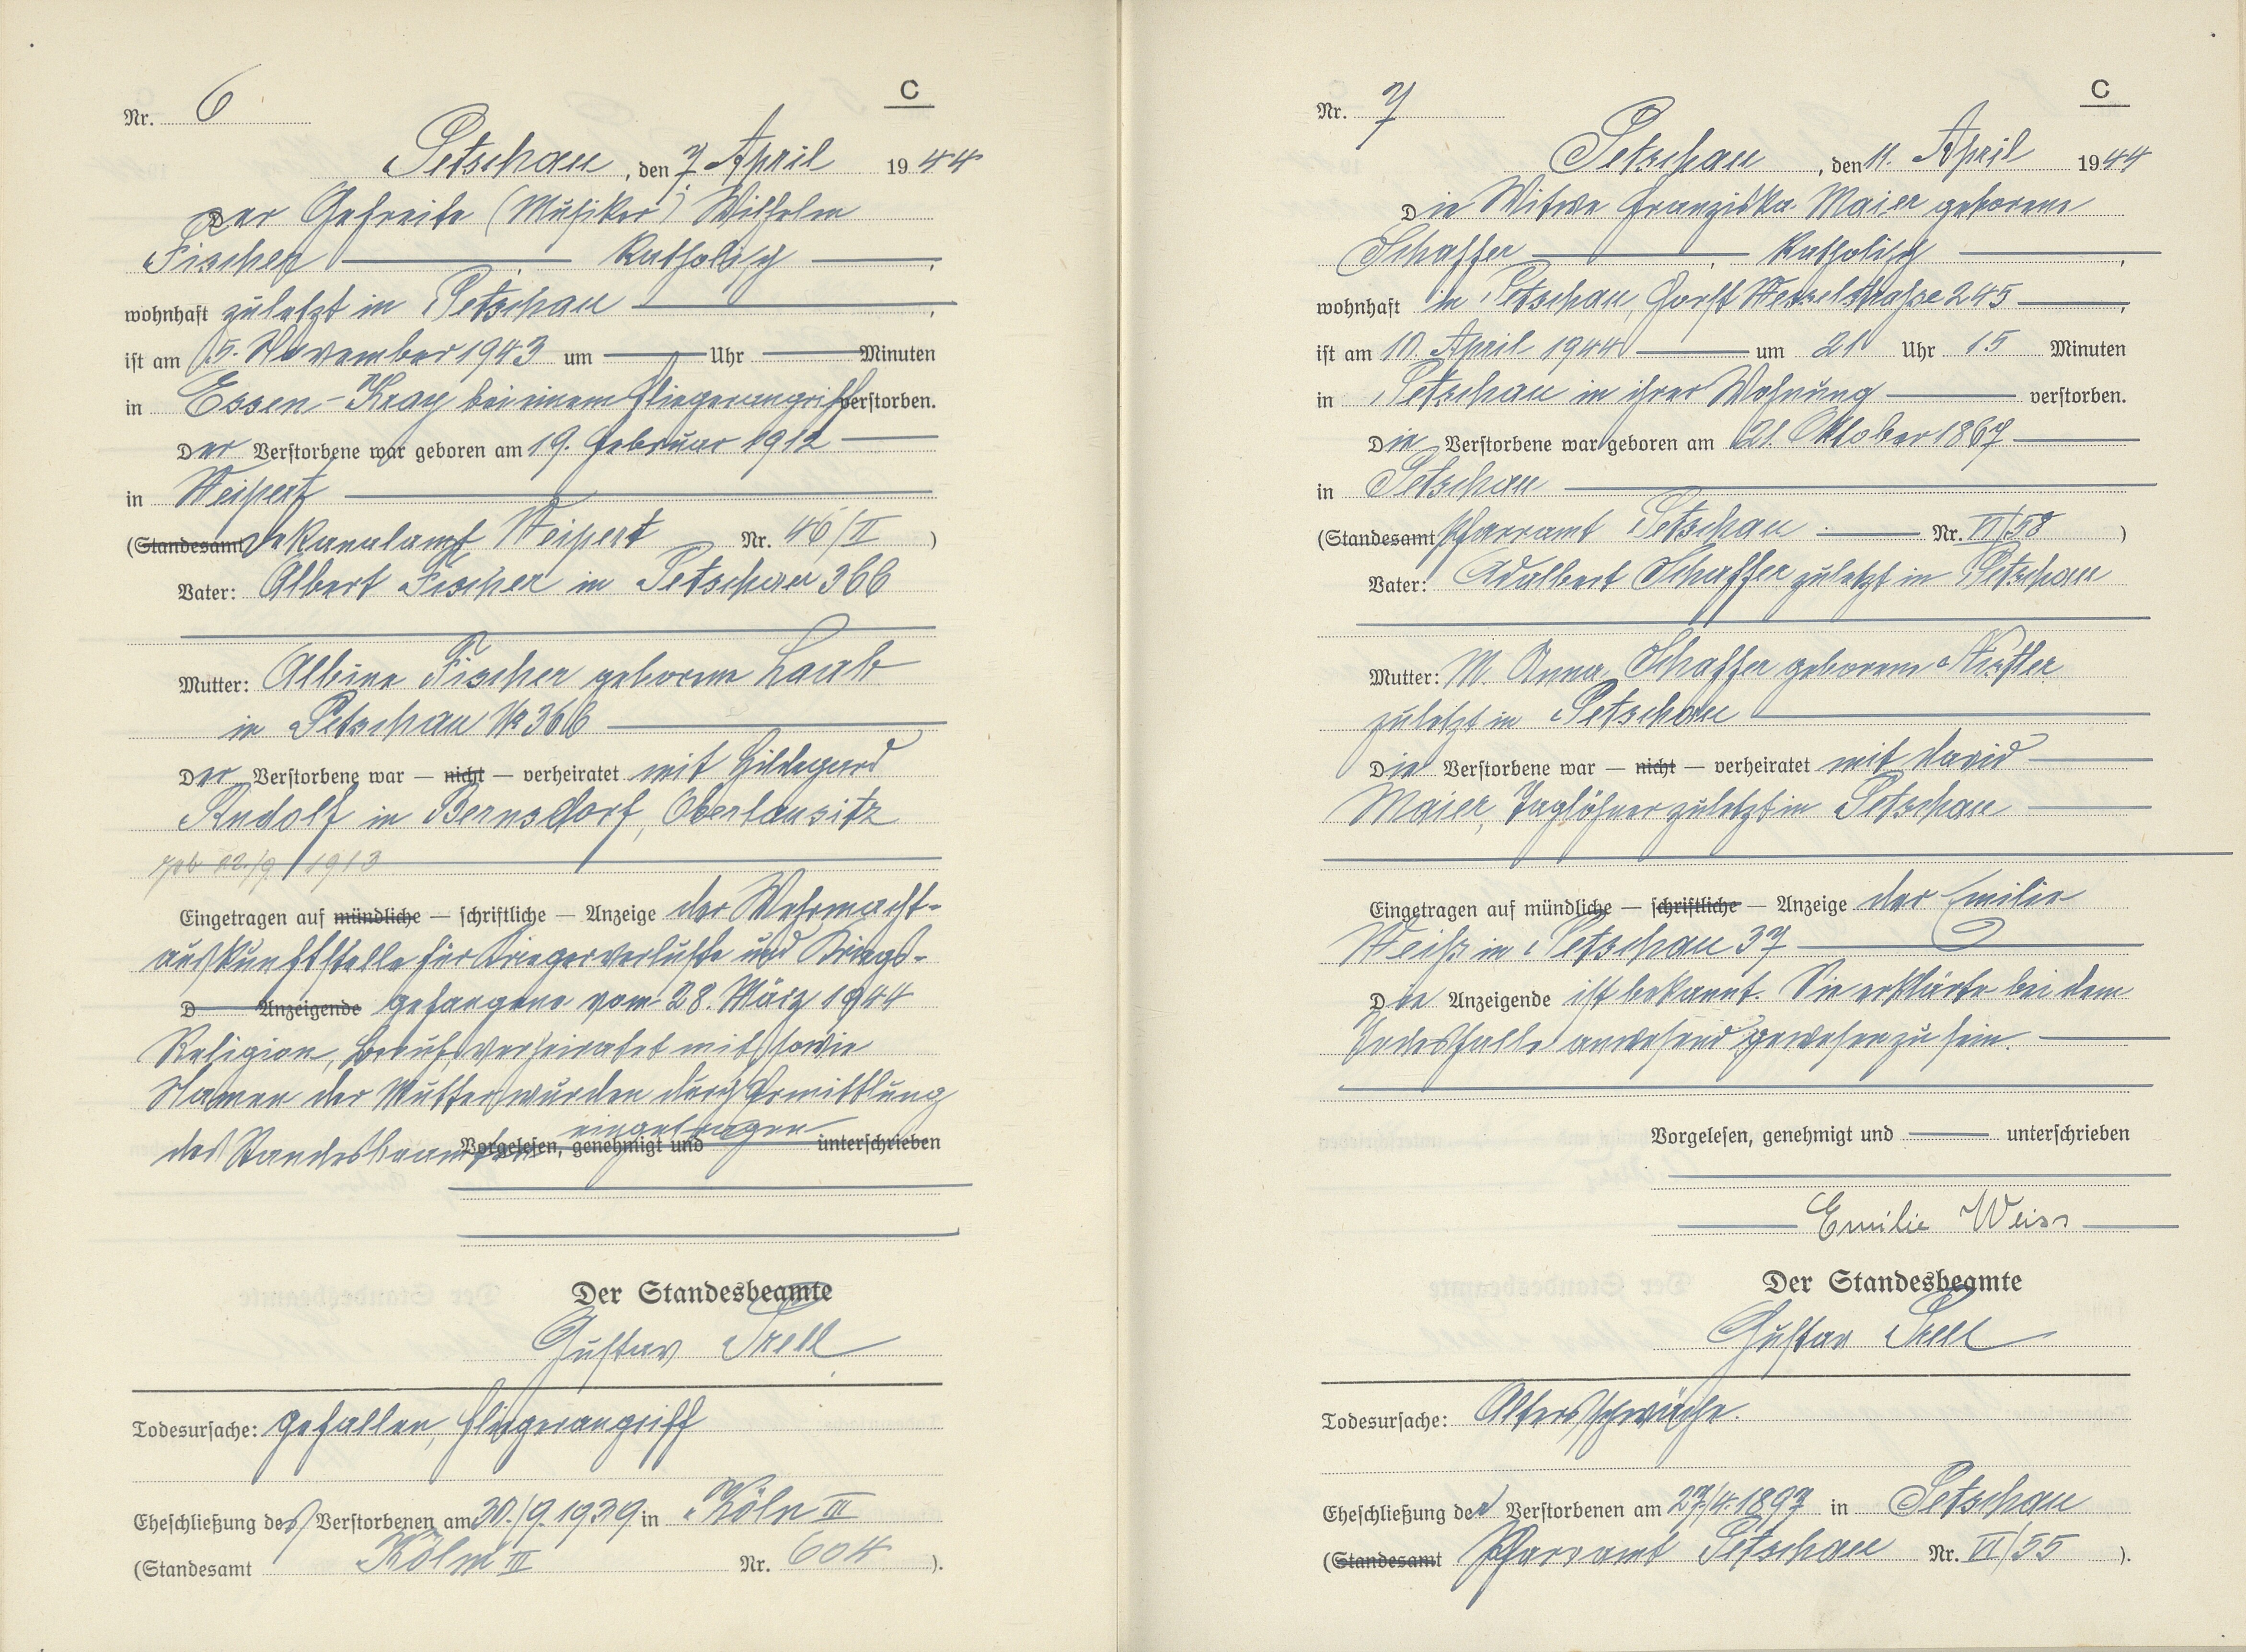 C
Nr. 6
Petschau, den 7. April 1944
Der Gefreite (Musiker) Wilhelm
Fischer katholisch,
wohnhaft zuletzt in Petschau,
ist am 5. November 1943 um Uhr Minuten
in Essen-Kray bei einem Fliegerangriff verstorben.
Der Verstorbene war geboren am 19. Februar 1912
in Weipert
(Standesamt Dekanalamt Weipert Nr. 46/II)
Vater: Albert Fischer in Petschau 366
Mutter: Albine Fischer geborene Laub
in Petschau Nr 366
Der Verstorbene war — nicht — verheiratet mit Hildegard
Rudolf in Bernsdorf, Oberlausitz
geb 1913
Eingetragen auf mündliche — schriftliche — Anzeige der Wehrmacht-
auskunftstelle für Kriegerverluste und Kriegs-
D Anzeigende gefangene vom 28. März 1944
Religion, Beruf, verheiratet mit, sowie
Namen der Mutter wurden durch Ermittlung
des Standesbeamten eingetragen
Vorgelesen, genehmigt und unterschrieben
Der Standesbeamte
Gustav
Todesursache: gefallen, Fliegerangriff
Eheschließung des Verstorbenen am 30./9.1939 in Köln III
(Standesamt Köln III Nr. 604).
C
Nr. 7
Petschau, den 11. April 1944
Die Witwe Franziska Maier geborene
Schaffer, katholisch,
wohnhaft in Petschau, Horst Wesselstraße 245,
ist am 10. April 1944 um 21 Uhr 15 Minuten
in Petschau in ihrer Wohnung verstorben.
Die Verstorbene war geboren am 21. Oktober 1867
in Petschau
(Standesamt Pfarramt Petschau Nr. VI/58)
Vater: Adalbert Schaffer zuletzt in Petschau
Mutter: M. Anna Schaffer geborene
zuletzt in Petschau
Die Verstorbene war — nicht — verheiratet mit David
Maier, Taglöhner zuletzt in Petschau
Eingetragen auf mündliche — schriftliche — Anzeige der Emilie
Weiß in Petschau 37
Die Anzeigende ist bekannt. Sie erklärte bei dem
Todesfalle anwesend gewesen zu sein.
Vorgelesen, genehmigt und unterschrieben
Emilie Weiss
Der Standesbeamte
Gustav
Todesursache: Altersschwäche.
Eheschließung der Verstorbenen am 27./4.1897 in Petschau
(Standesamt Pfarramt Petschau Nr. VI/55).